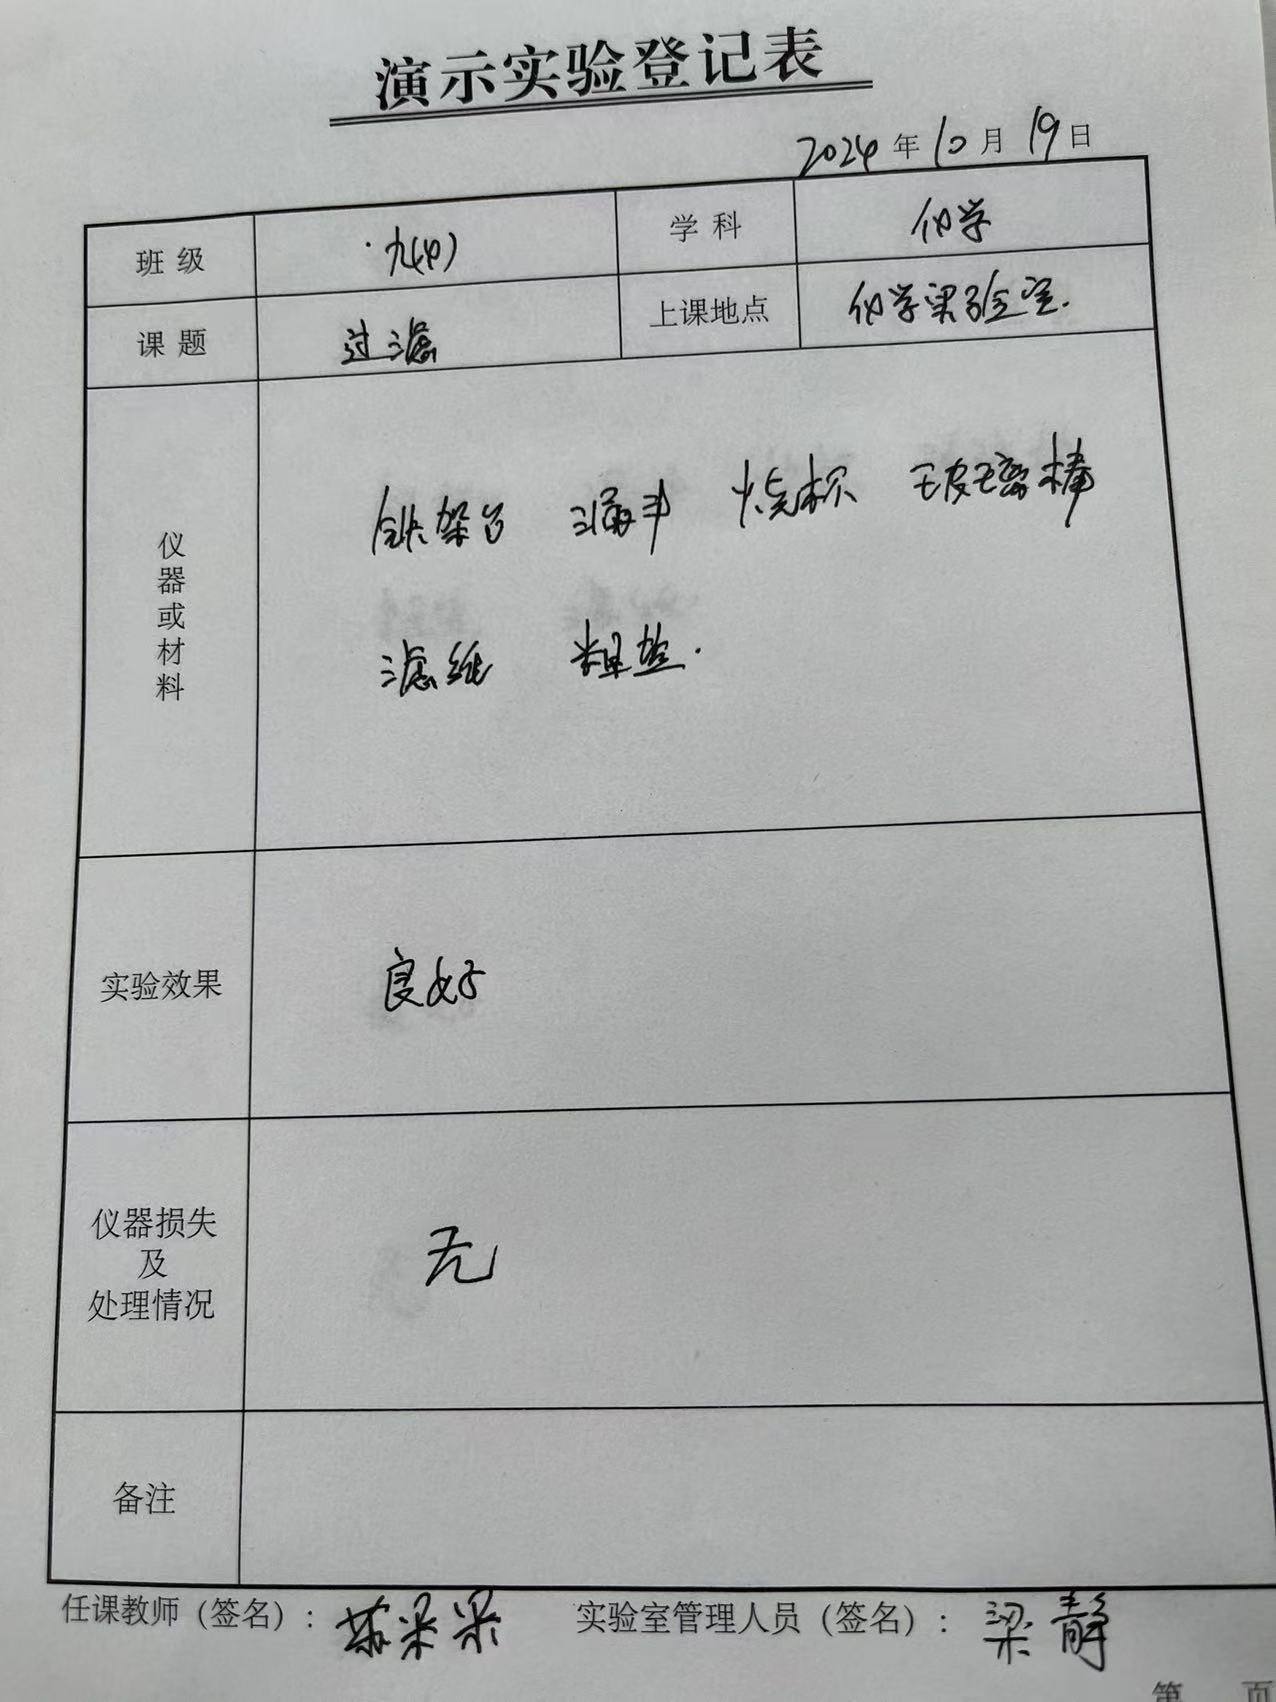 演示实验登记表
2024年10月19日
班级 九(4) 学科 化学
课题 过滤 上课地点 化学实验室.
仪器或材料
铁架台 漏斗 烧杯 玻璃棒
滤纸 粗盐.
实验效果 良好
仪器损失
及
处理情况
无
备注
任课教师（签名）： 实验室管理人员（签名）：梁静
第 页